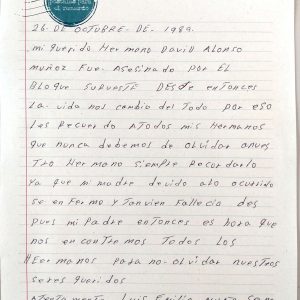 postales para
el recuerdo
26 DE OCTUBRE. DE. 1989.
mi querido Hermano David Alonso
muñoz Fue. Asesinado por El
Bloque SURUESTE DESde enTonces
La vida nos cambio del Todo por eso
Les Recuerdo ATodos mis Hermanos
que nunca debemos de olvidar anues
Tro Hermano siempre Recordarlo
Ya que mi madre devido alo ocurrido
se enFermo y Tanvien Fallecio des
pues mi Padre enTonces es hora que
nos encontremos Todos Los
Hermanos para no-olvidar nuestros
seres queridos
ATentamente Luis Emilio